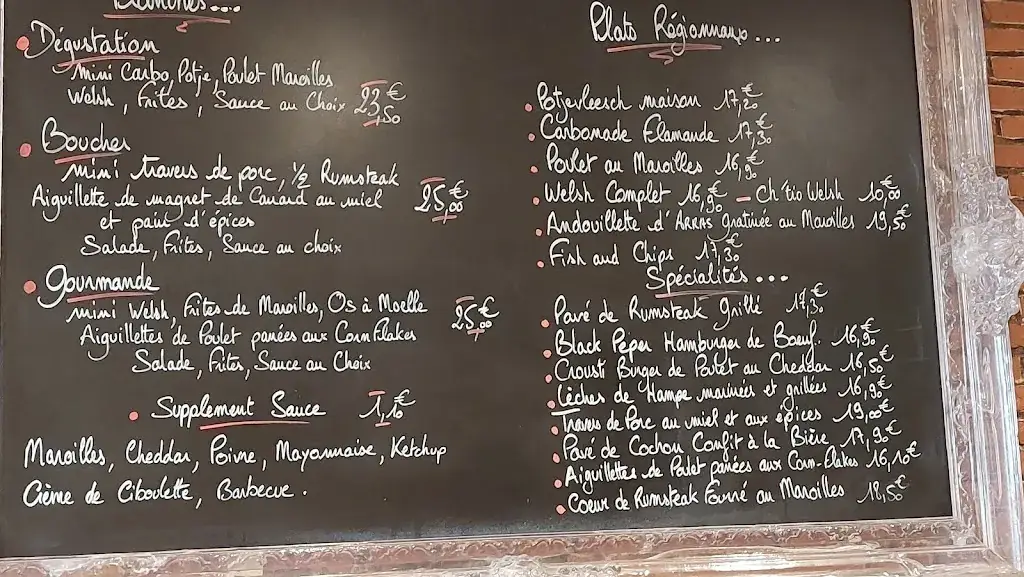 Dégustation
Mini Carbo, Potje, Poulet Maroilles
Welsh, Frites, Sauce au Choix 23,50€
Boucher
Mini travers de porc, 1/2 Rumsteak
Aiguillette de magret de Canard au miel 25,00€
et pain d'épices
Salade, Frites, Sauce au choix
Gourmande
Mini Welsh, Frites de Maroilles, Os à Moelle 25,00€
Aiguillettes de Poulet panées aux Corn Flakes
Salade, Frites, Sauce au Choix
Supplement Sauce 1,10€
Maroilles, Cheddar, Poivre, Mayonnaise, Ketchup
Crème de Ciboulette, Barbecue.
Plats Régionnaux...
Potjevleesch maison 17,20€
Carbonade Flamande 17,30€
Poulet au Maroilles 16,90€
Welsh Complet 16,90€ - Ch'tio Welsh 10,00€
Andouillette d'ARRAS Gratinée au Maroilles 19,50€
Fish and Chips 17,30€
Spécialités...
Pavé de Rumsteak Grillé 17,30€
Black Peper Hamburger de Boeuf. 16,90€
Crousti Burger de Poulet au Cheddar 16,50€
Lèches de Hampe marinées et grillées 16,90€
Travers de Porc au miel et aux épices 19,00€
Pavé de Cochon Confit à la Bière 17,90€
Aiguillettes de Poulet panées aux Corn-Flakes 16,10€
Coeur de Rumsteak Fourré au Maroilles 18,50€